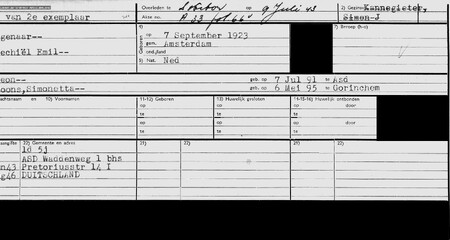 Overleden te Sobibor op 9 Juli 43 2) Gezinshoofd Kannegieter,
van 2e exemplaar Akte no. A 33 fol 64 Simon-J
genaar-- op 7 September 1923 7) Beroep
gem. Amsterdam
chiël Emil-- land
5) Nat. Ned
eon-- geb. op 7 Jul 91 te Asd
oons,Simonetta-- geb. op 6 Mei 95 te Gorinchem
achternaam en 10) Voornamen 11-12) Geboren 13) Huwelijk gesloten 14-15-16) Huwelijk ontbonden
op op op door
te te te
op op op door
te te te
22) Gemeente en adres 21) 22) 21) 22)
id 5j
ASD Waddenweg 1 bhs
n43 Pretoriusstr 14 I
g46 DUITSCHLAND